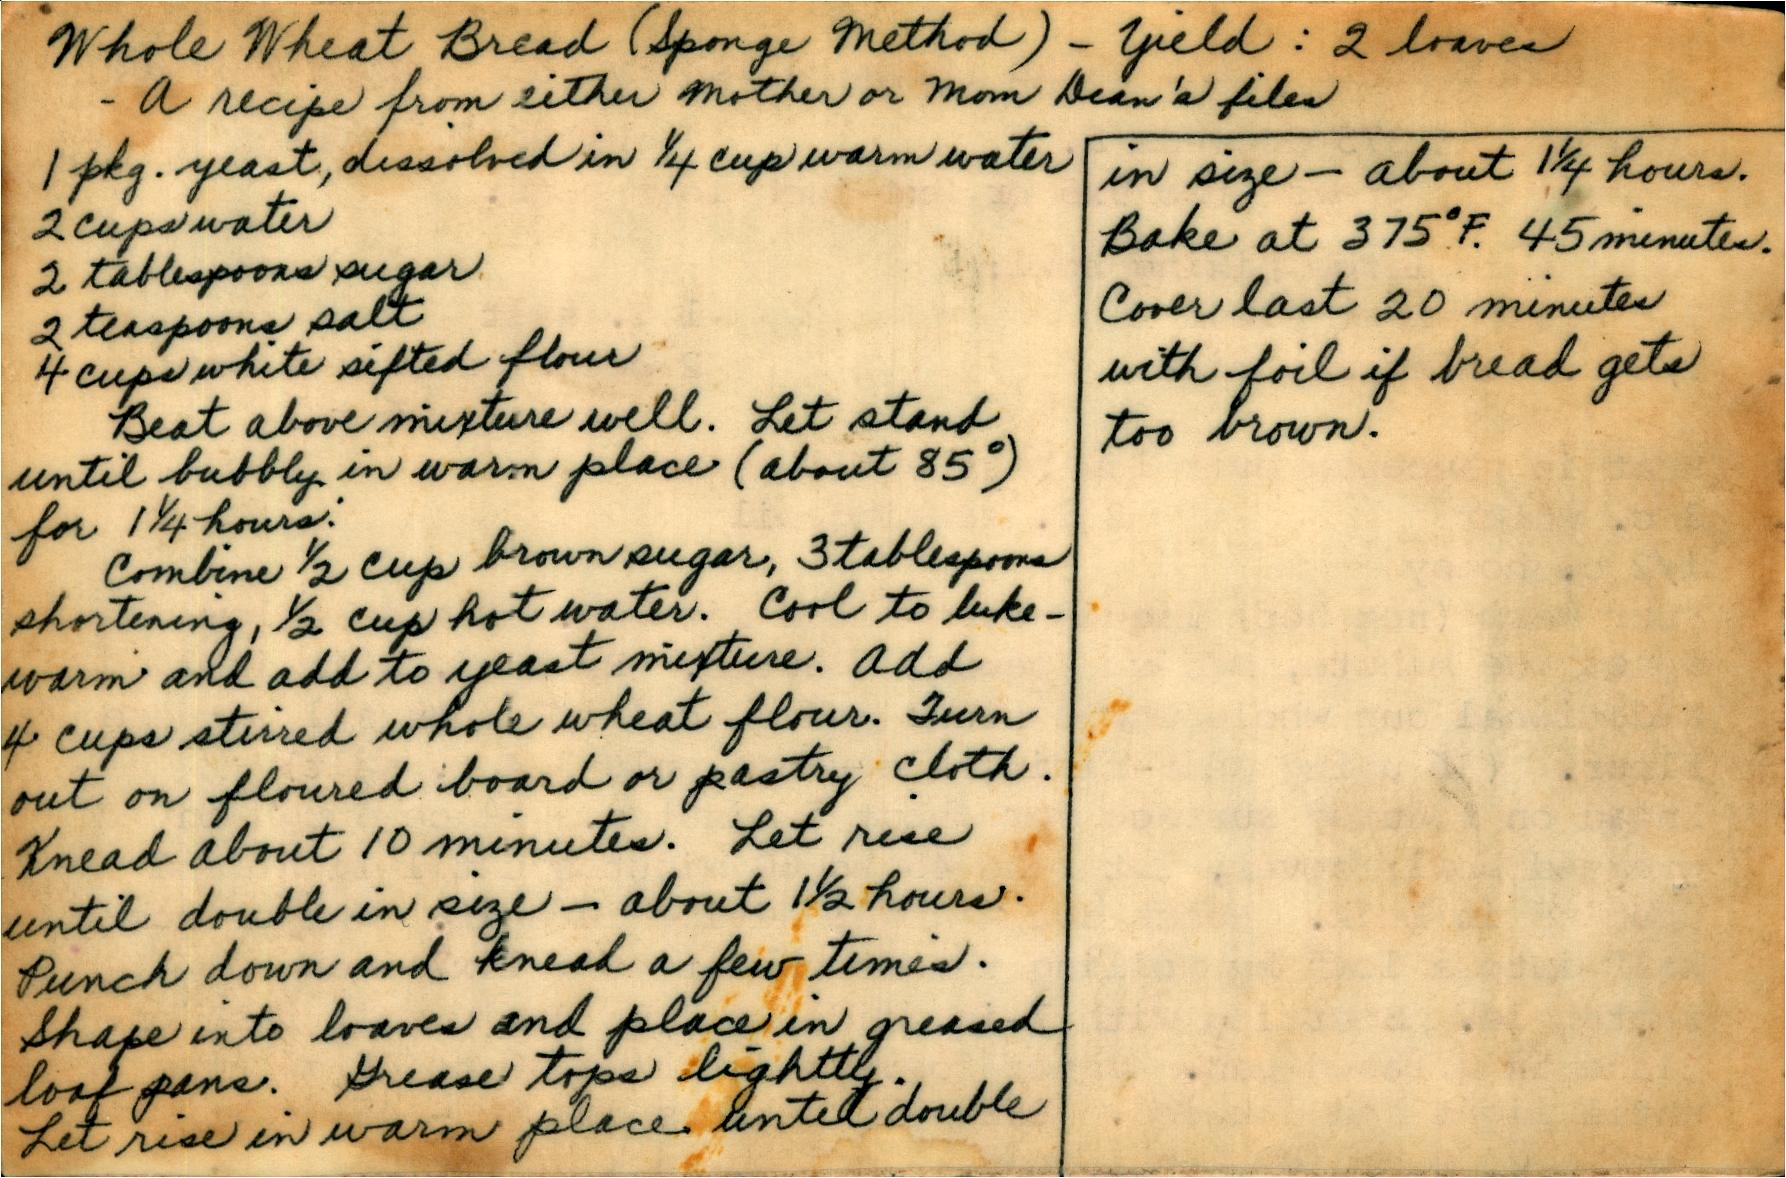 Whole Wheat Bread (Sponge Method) - Yield : 2 loaves
- A recipe from either Mother or Mom Dean's files
1 pkg. yeast, dissolved in ¼ cup warm water
2 cups water
2 tablespoons sugar
2 teaspoons salt
4 cups white sifted flour
Beat above mixture well. Let stand
until bubbly in warm place (about 85°)
for 1¼ hours.
Combine ½ cup brown sugar, 3 tablespoons
shortening, ½ cup hot water. Cool to luke-
warm and add to yeast mixture. Add
4 cups stirred whole wheat flour. Turn
out on floured board or pastry cloth.
Knead about 10 minutes. Let rise
until double in size — about 1½ hours.
Punch down and knead a few times.
Shape into loaves and place in greased
loaf pans. Grease tops lightly.
Let rise in warm place until double
in size — about 1¼ hours.
Bake at 375°F. 45 minutes.
Cover last 20 minutes
with foil if bread gets
too brown.